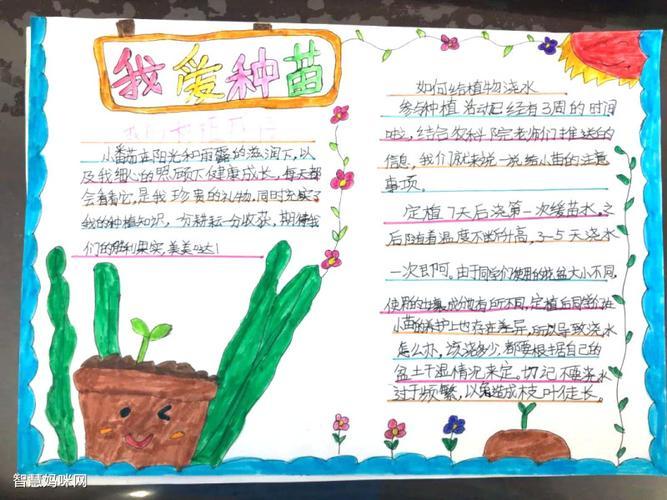 我爱种苗
小番茄在阳光和雨露的滋润下,以
及我细心的照顾下健康成长,每天都
会看看它,是我珍贵的礼物,同时充实了
我的种植知识,一分耕耘一分收获,期待我
们的胜利果实,美美哒!
如何给植物浇水
参与种植活动已经有3周的时间
啦,结合农科院老师们推送的
信息,我们就来说一说给小苗的注意
事项。
定植7天后浇第一次缓苗水,之
后随着温度不断升高,3-5天浇水
一次即可。由于同学们使用的花盆大小不同,
使用的土壤成份有所不同,定植后同学们在
小苗的养护上也存在差异,所以导致浇水
怎么办,该浇多少,都要根据自己的
盆土干湿情况来定,切记不要浇水
过于频繁,以免造成枝叶徒长。
智慧妈咪网